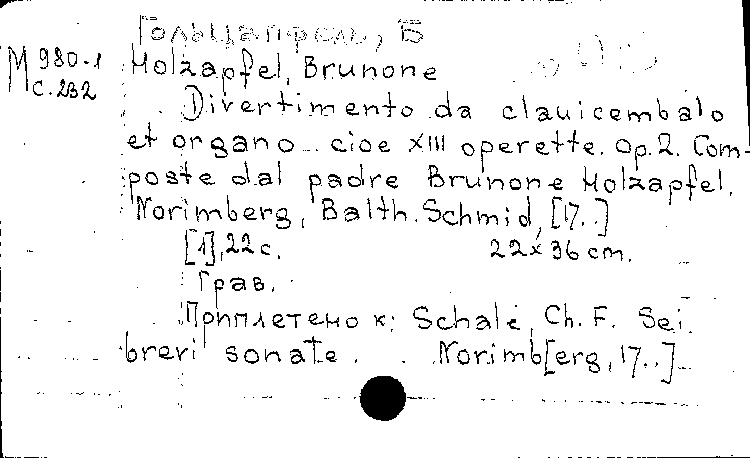 Гольцапфель, Б
М 980-1
с. 232
Holzapfel, Brunone
Divertimento da clauicembalo
et organo... cioe XIII operette. Op. 2. Com-
poste dal padre Brunone Holzapfel.
Norimberg, Balth. Schmid, [17..]
[1], 22 с. 22x36 cm.
Грав.
Приплетено к: Schale, Ch. F. Sei.
breri sonate. . . Norimb[erg, 17..]